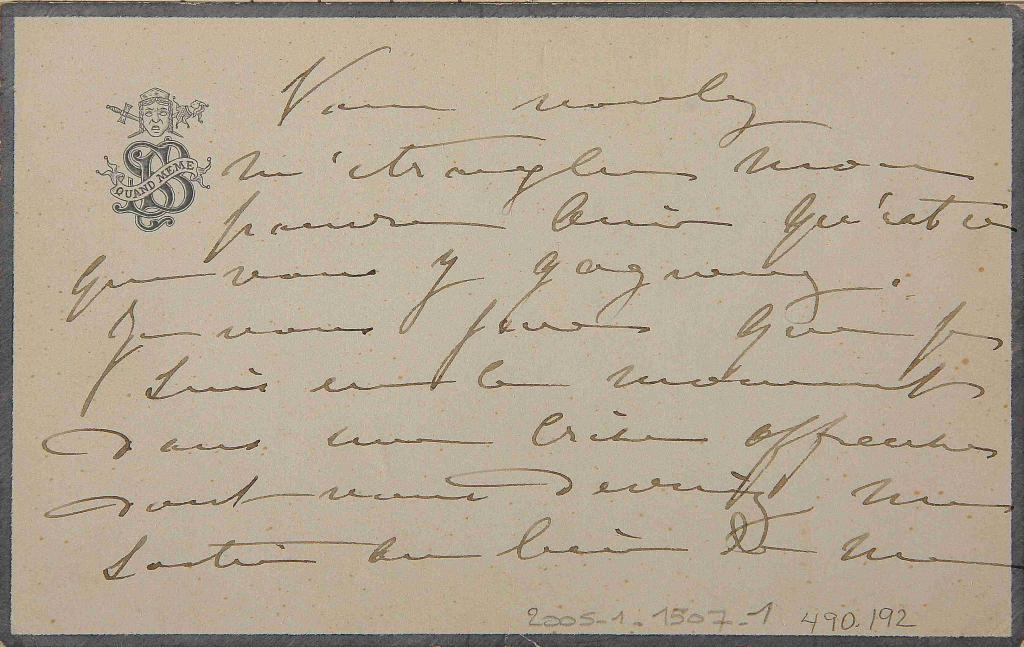 QUAND MEME
Vous voulez
m'étrangler mon
pauvre ami qu'est ce
que vous y gagnerez.
Je vous jure que je
suis en ce moment
dans une crise affreuse
dont vous devriez me
sortir au lieu de me
2005-1-1507-1 490.192